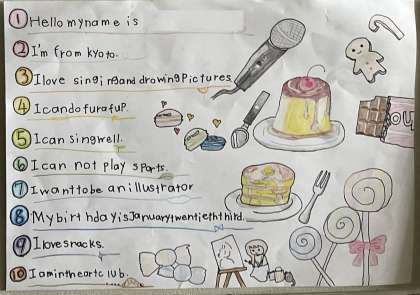 1 Hello my name is
2 I'm from kyoto.
3 I love singing and drowing Pictures
4 I can do furafuP.
5 I can sing well.
6 I can not play sports.
7 I want to be an illustrator
8 My birthday is January twentieth third.
9 I love snacks.
10 I am in the art club.